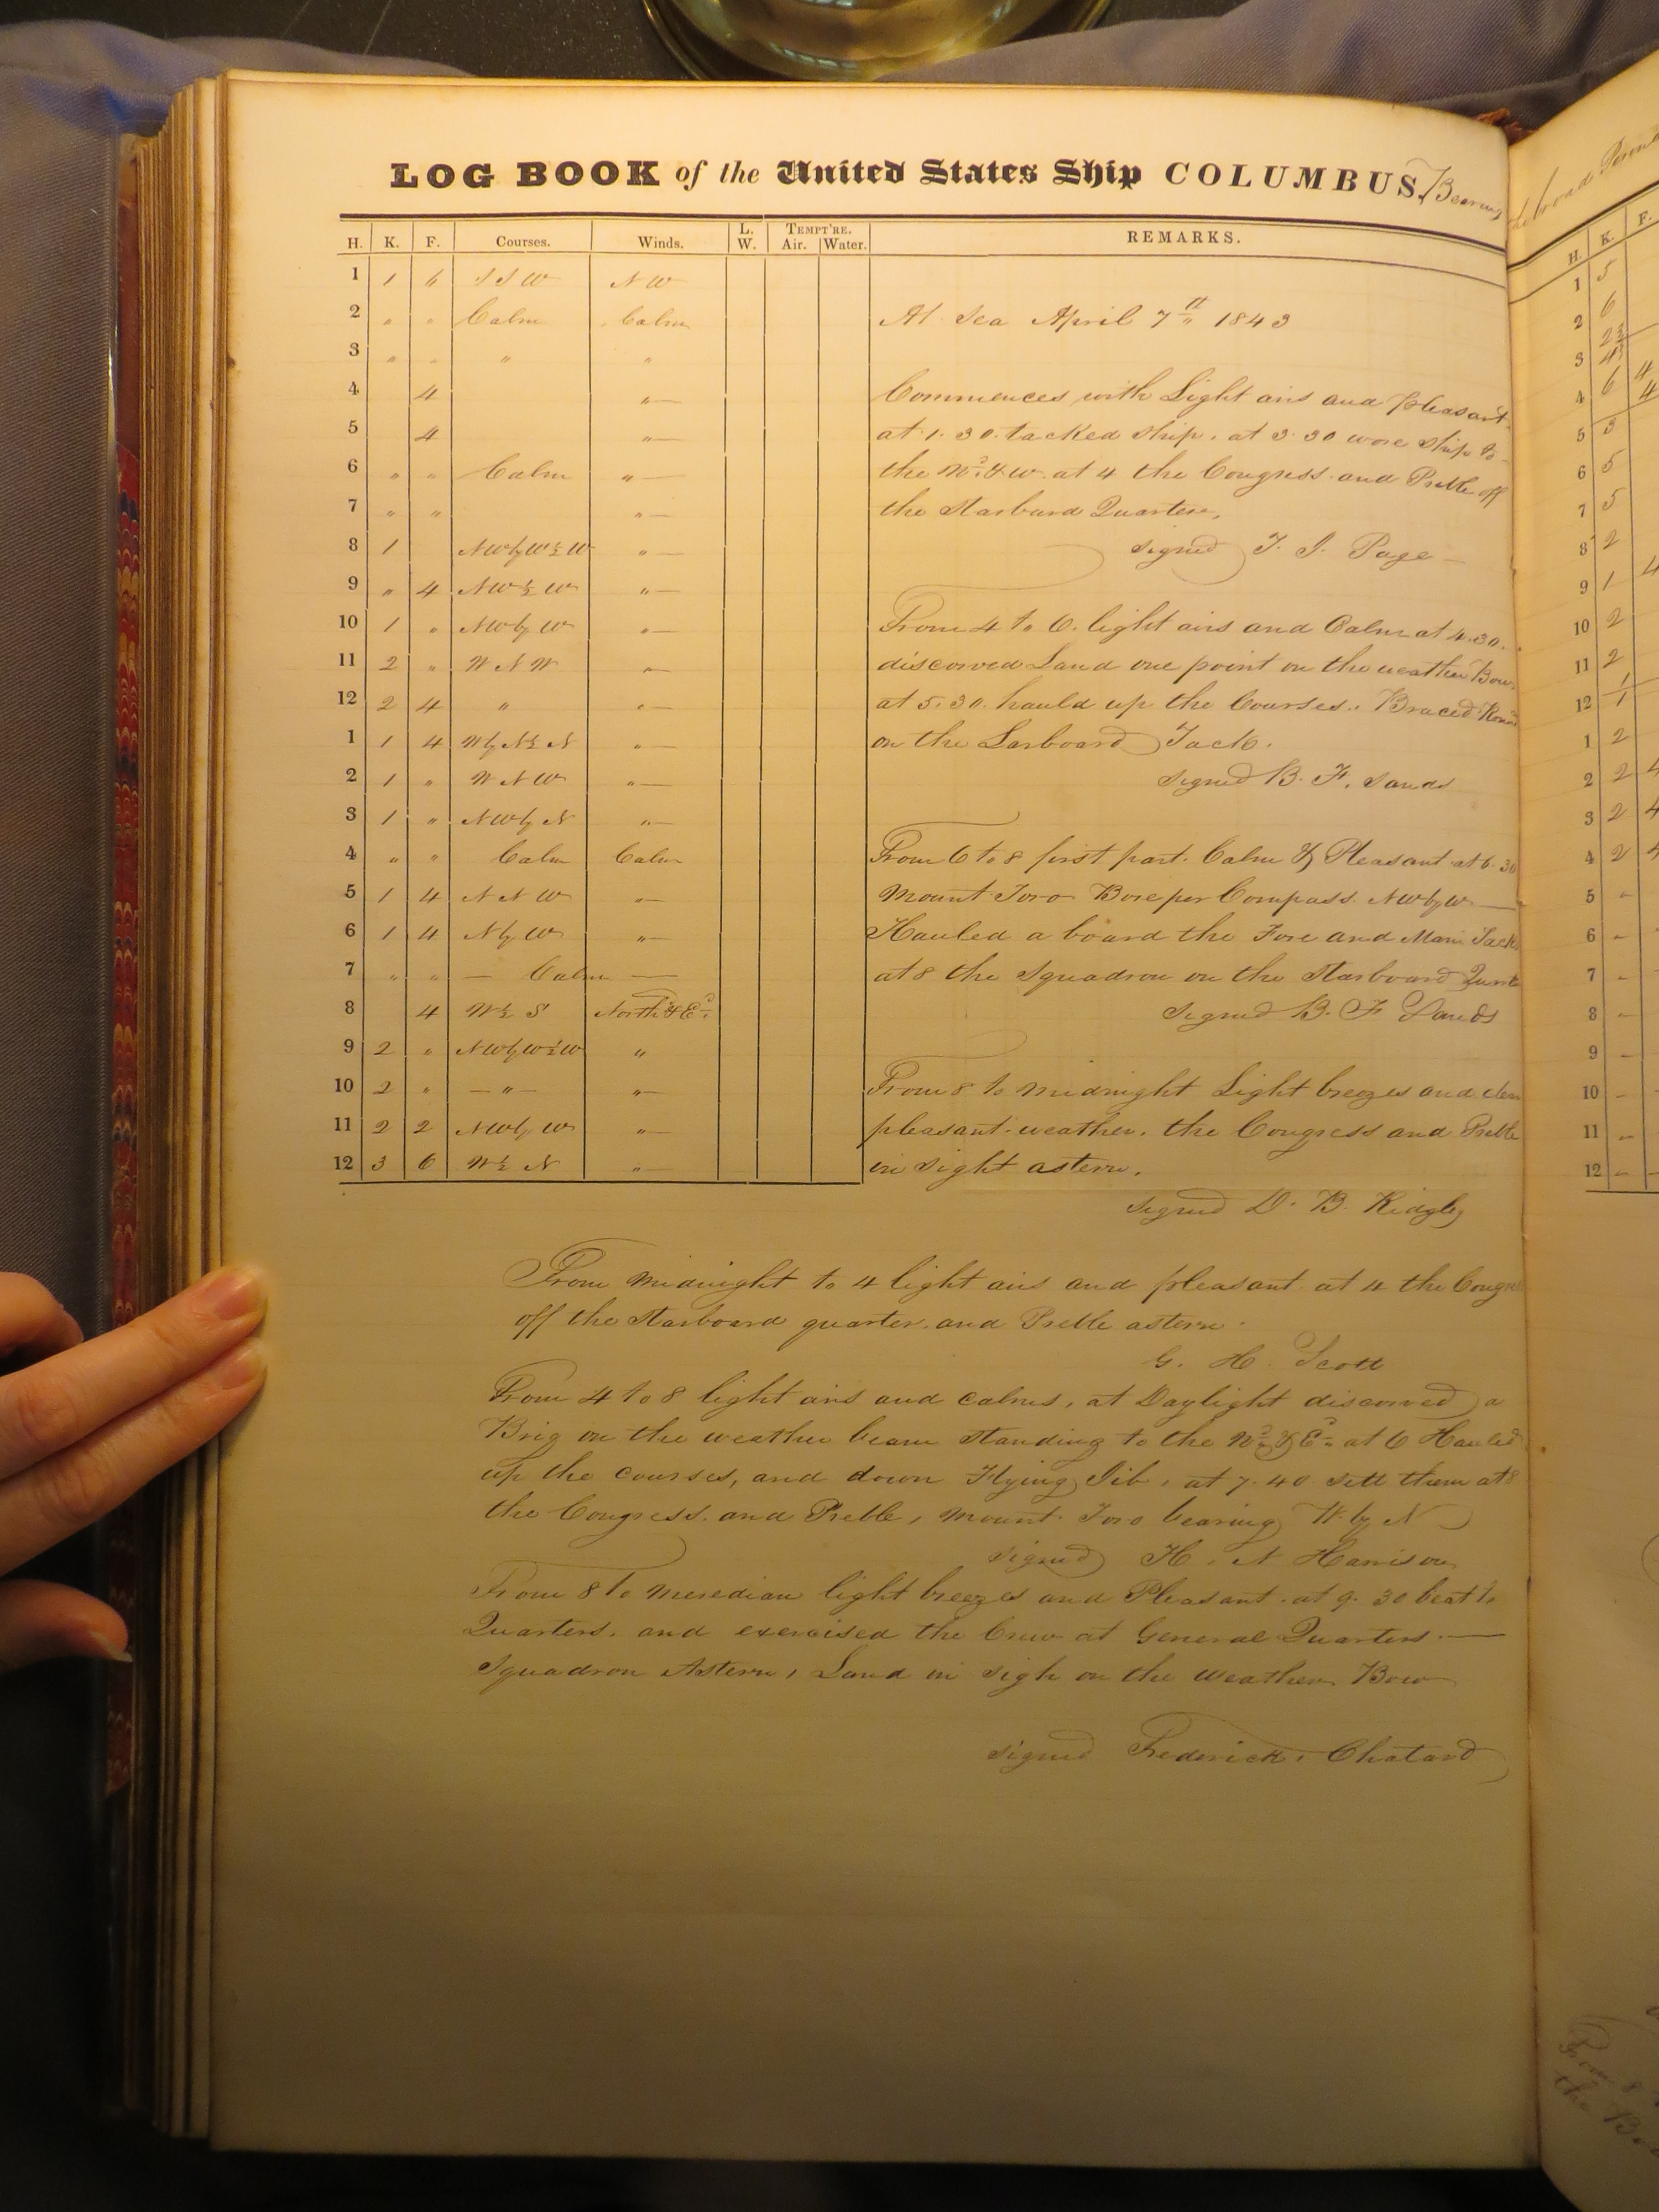 LOG BOOK of the United States Ship COLUMBUS. Bearing
H. K. F. Courses. Winds. L. W. TEMPT'RE. Air. Water. REMARKS.
1 1 6 S S W N W
2 " " Calm Calm At Sea April 7th 1843
3 " " " "
4 4 " Commences with Light airs and pleasant
5 4 " at 1.30 tacked ship. at 3.30 wore ship to
6 " " Calm " the Nd & W. at 4 the Congress and Preble off
7 " " " the Starbard Quarter,
8 1 NWbyW½W " signed T. J. Page
9 " 4 NW½W "
10 1 " NWbyW " From 4 to 6. light airs and Calm at 4.30.
11 2 " W N W " discoverd Land one point on the weather Bow.
12 2 4 " " at 5.30. hauld up the Courses.. Braced Round
1 1 4 WbyN½N " on the Larboard Tack.
2 1 " W N W " signed B. F. Sands
3 1 " NWbyN "
4 " " Calm Calm From 6 to 8 first part. Calm & Pleasant at 6.30
5 1 4 N N W " Mount Toro Bore per Compass. NWbyW
6 1 4 NbyW " Hauled a board the Fore and Main Tack
7 " " — Calm — at 8 the Squadron on the Starboard
8 4 W½S North & Ed signed B. F Sands
9 2 " NWbyW½W "
10 2 " — " — " From 8 to midnight Light breezes and
11 2 2 NWbyW " pleasant weather. the Congress and Preble
12 3 6 W½N " in sight astern.
signed D. B. Ridgley
From midnight to 4 light airs and pleasant. at 4 the Congress
off the Starboard quarter. and Preble astern.
G. H. Scott
From 4 to 8 light airs and calms, at Daylight discoverd a
Brig on the weather beam standing to the Nd & Ed at 6 Hauled
up the courses, and down Flying Jib, at 7.40 sett them at 8
the Congress. and Preble, Mount Toro bearing W. by N
signed H. N Harrison
From 8 to Meredian light breezes and Pleasant. at 9.30 beat to
Quarters. and exercised the Crew at General Quarters. —
Squadron Astern, Land in sigh on the weather Bow
signed Frederick Chatard
H. K. F.
1 5
2 6
3
4 6 4
5 3
6 5
7 5
8 2
9 1 4
10 2
11 2
12
1 2
2 2 4
3 2 4
4 2 4
5 "
6 "
7 "
8 "
9 "
10 "
11 "
12 "
From 8
the